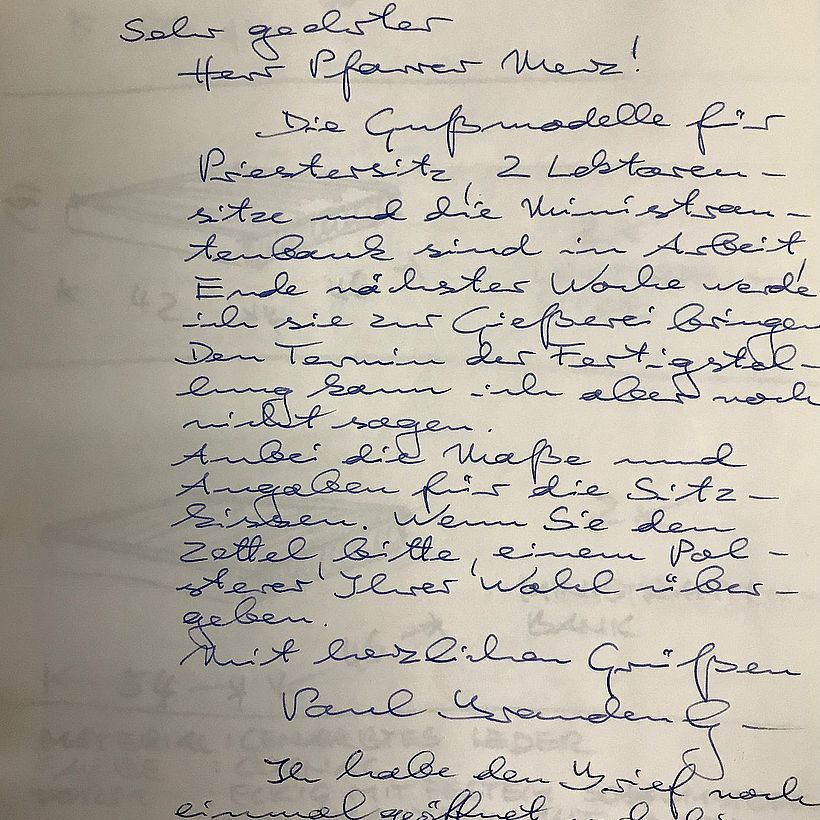 Sehr geehrter
Herr Pfarrer Merz!
Die Gußmodelle für
Priestersitz, 2 Lektoren-
sitze und die Ministran-
tenbank sind in Arbeit,
Ende nächster Woche werde
ich sie zur Gießerei bringen
Den Termin der Fertigstel-
lung kann ich aber noch
nicht sagen.
Anbei die Maße und
Angaben für die Sitz-
kissen. Wenn Sie den
Zettel, bitte, einem Pol-
sterer Ihrer Wahl über-
geben.
Mit herzlichen Grüßen
Paul Brandenbg-
Ich habe den Brief noch
einmal geöffnet und